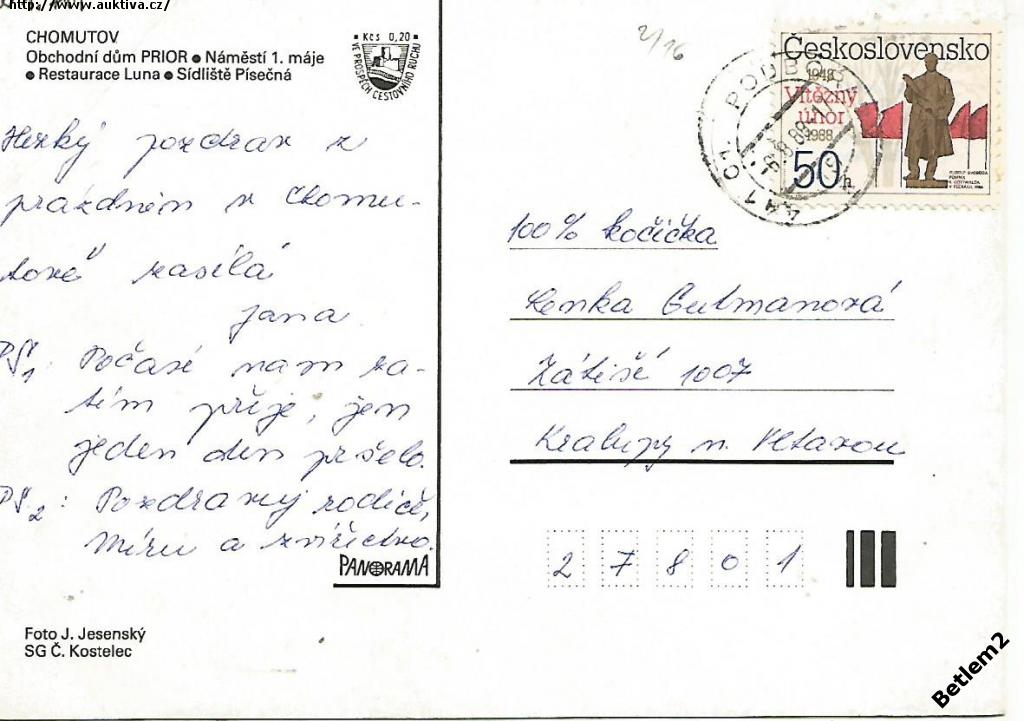 http://www.auktiva.cz/
CHOMUTOV
Obchodní dům PRIOR ● Náměstí 1. máje
● Restaurace Luna ● Sídliště Písečná
Kčs 0,20
VE PROSPĚCH CESTOVNÍHO RUCHU
2/16
Československo
1948
Vítězný
únor
1988
50
PODBO
441 01
Hezký pozdrav z
prázdnin v Chomu-
tově zasílá
Jana
PS1: Počasí nam za-
tím přije, jen
jeden den pršelo.
PS2: Pozdravuj rodiče,
Míru a zvířectvo.
PANORAMA
100% kočička
Lenka Gutmanová
Zátiší 1007
Kralupy n. Vltavou
27801
Foto J. Jesenský
SG Č. Kostelec
Betlem2